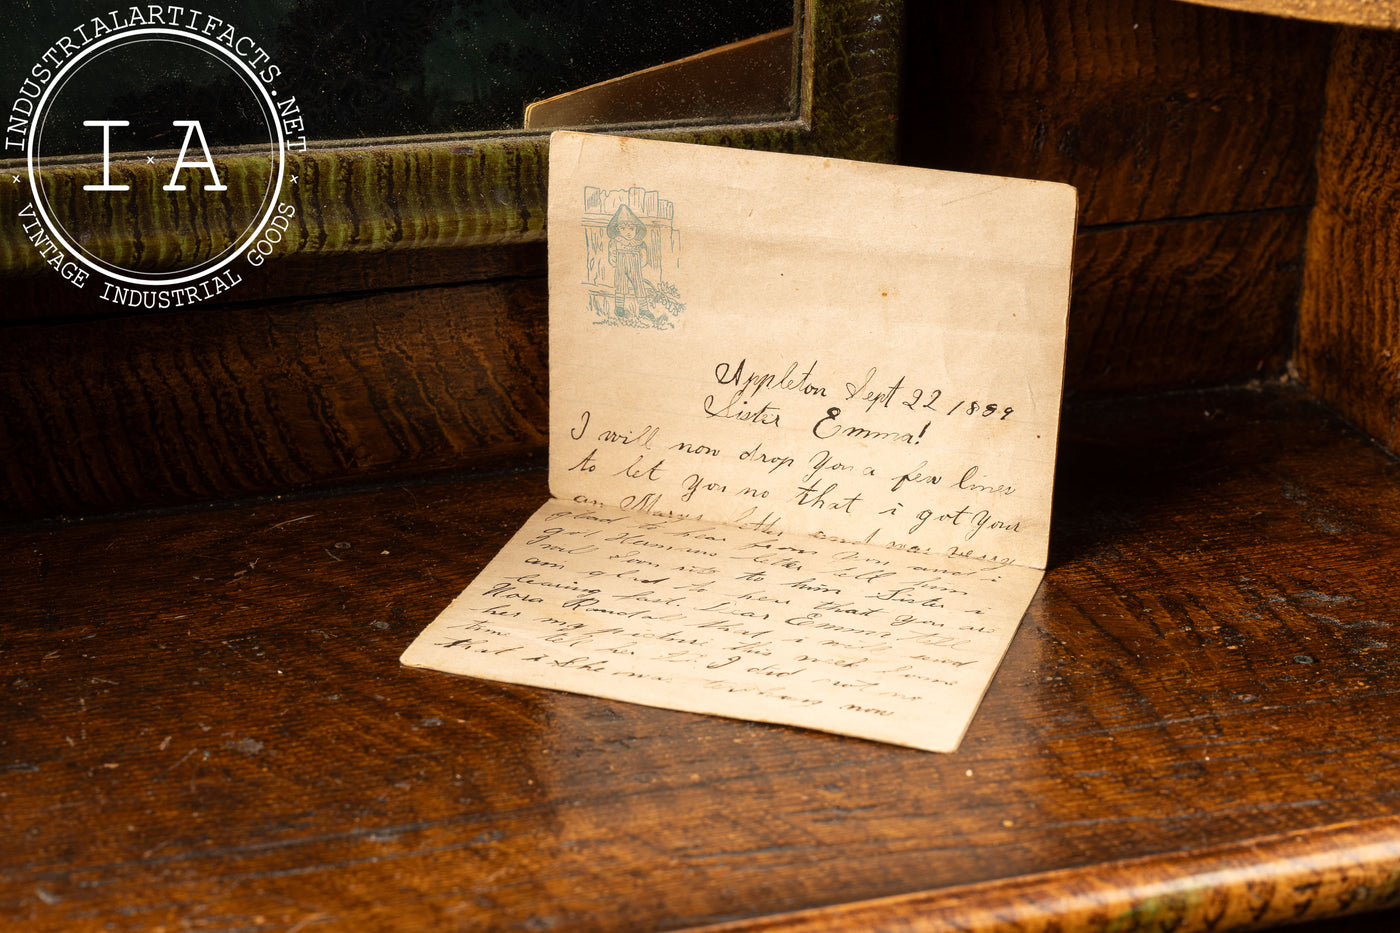 INDUSTRIALARTIFACTS.NET
IA
VINTAGE INDUSTRIAL GOODS
Appleton Sept 22 1899
Sister Emma!
I will now drop you a few lines
to let you no that i got your
an Marys letter and was verry
glad to hear from you and i
got Hermans letter tell him
i will soon rite to him Sister i
am glad to hear that you are
leaving fast. Dear Emma tell
Nora that i will send
her my picture this week some
time tell her I did not no
that i She was now